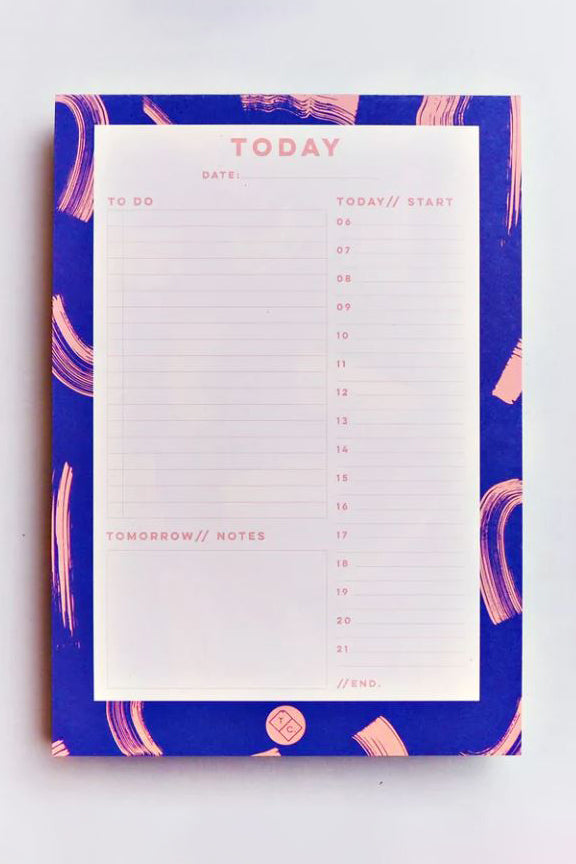 TODAY
DATE:
TO DO
TODAY// START
06
07
08
09
10
11
12
13
14
15
16
17
18
19
20
21
//END.
TOMORROW// NOTES
T
C